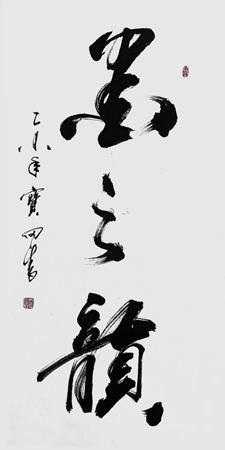 墨之韻
乙未年寶田書